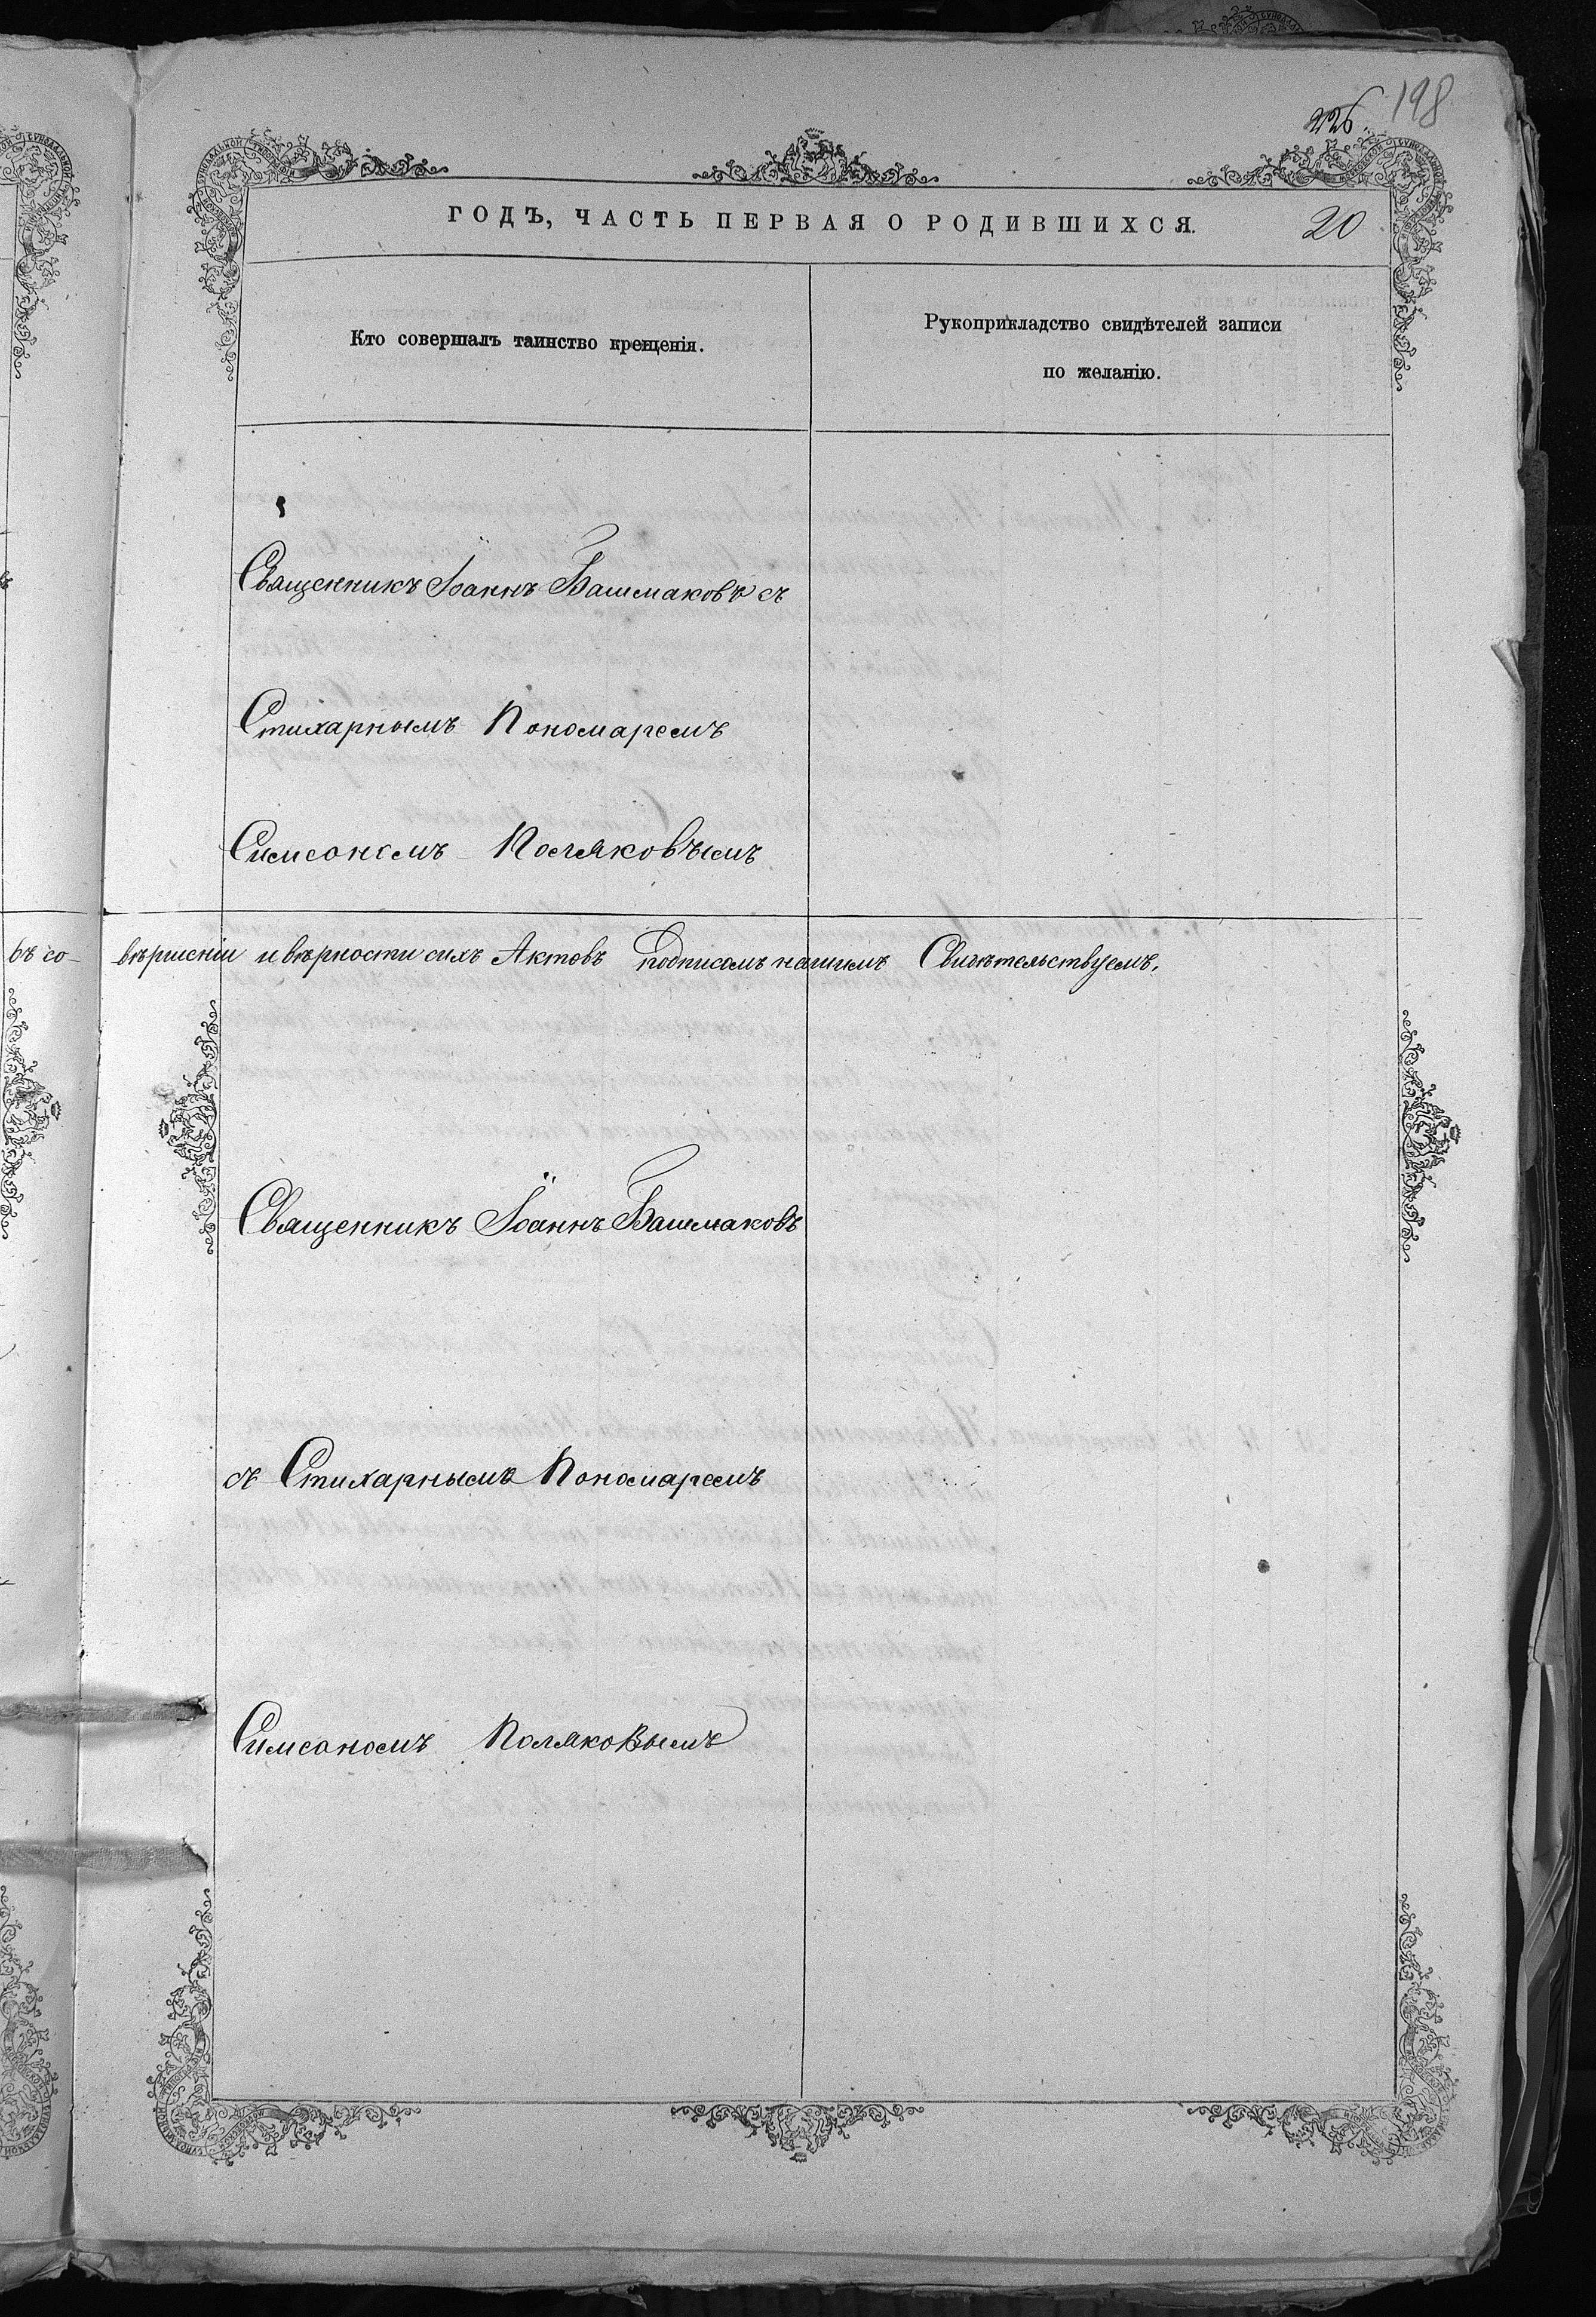 198
226
ГОДЪ, ЧАСТЬ ПЕРВАЯ О РОДИВШИХСЯ.
20
Кто совершалъ таинство крещенія.
Рукоприкладство свидѣтелей записи
по желанію.
Священникъ Іоаннъ Башмаковъ съ
Стихарнымъ Пономаремъ
Симеономъ Поляковымъ
въ со-
вѣршеніи и вѣрности сихъ Актовъ подписомъ нашимъ Свидѣтельствуемъ.
Священникъ Іоаннъ Башмаковъ
съ Стихарнымъ Пономаремъ
Симеономъ Поляковымъ